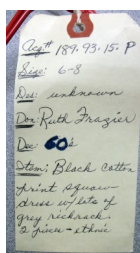 Acq# 189.93.15.P
Size: 6-8
Des: unknown
Don: Ruth Frazier
Dec: 60's
Item: Black Cotton
print squaw-
dress w/lots of
grey rickrack.
2 piece - ethnic